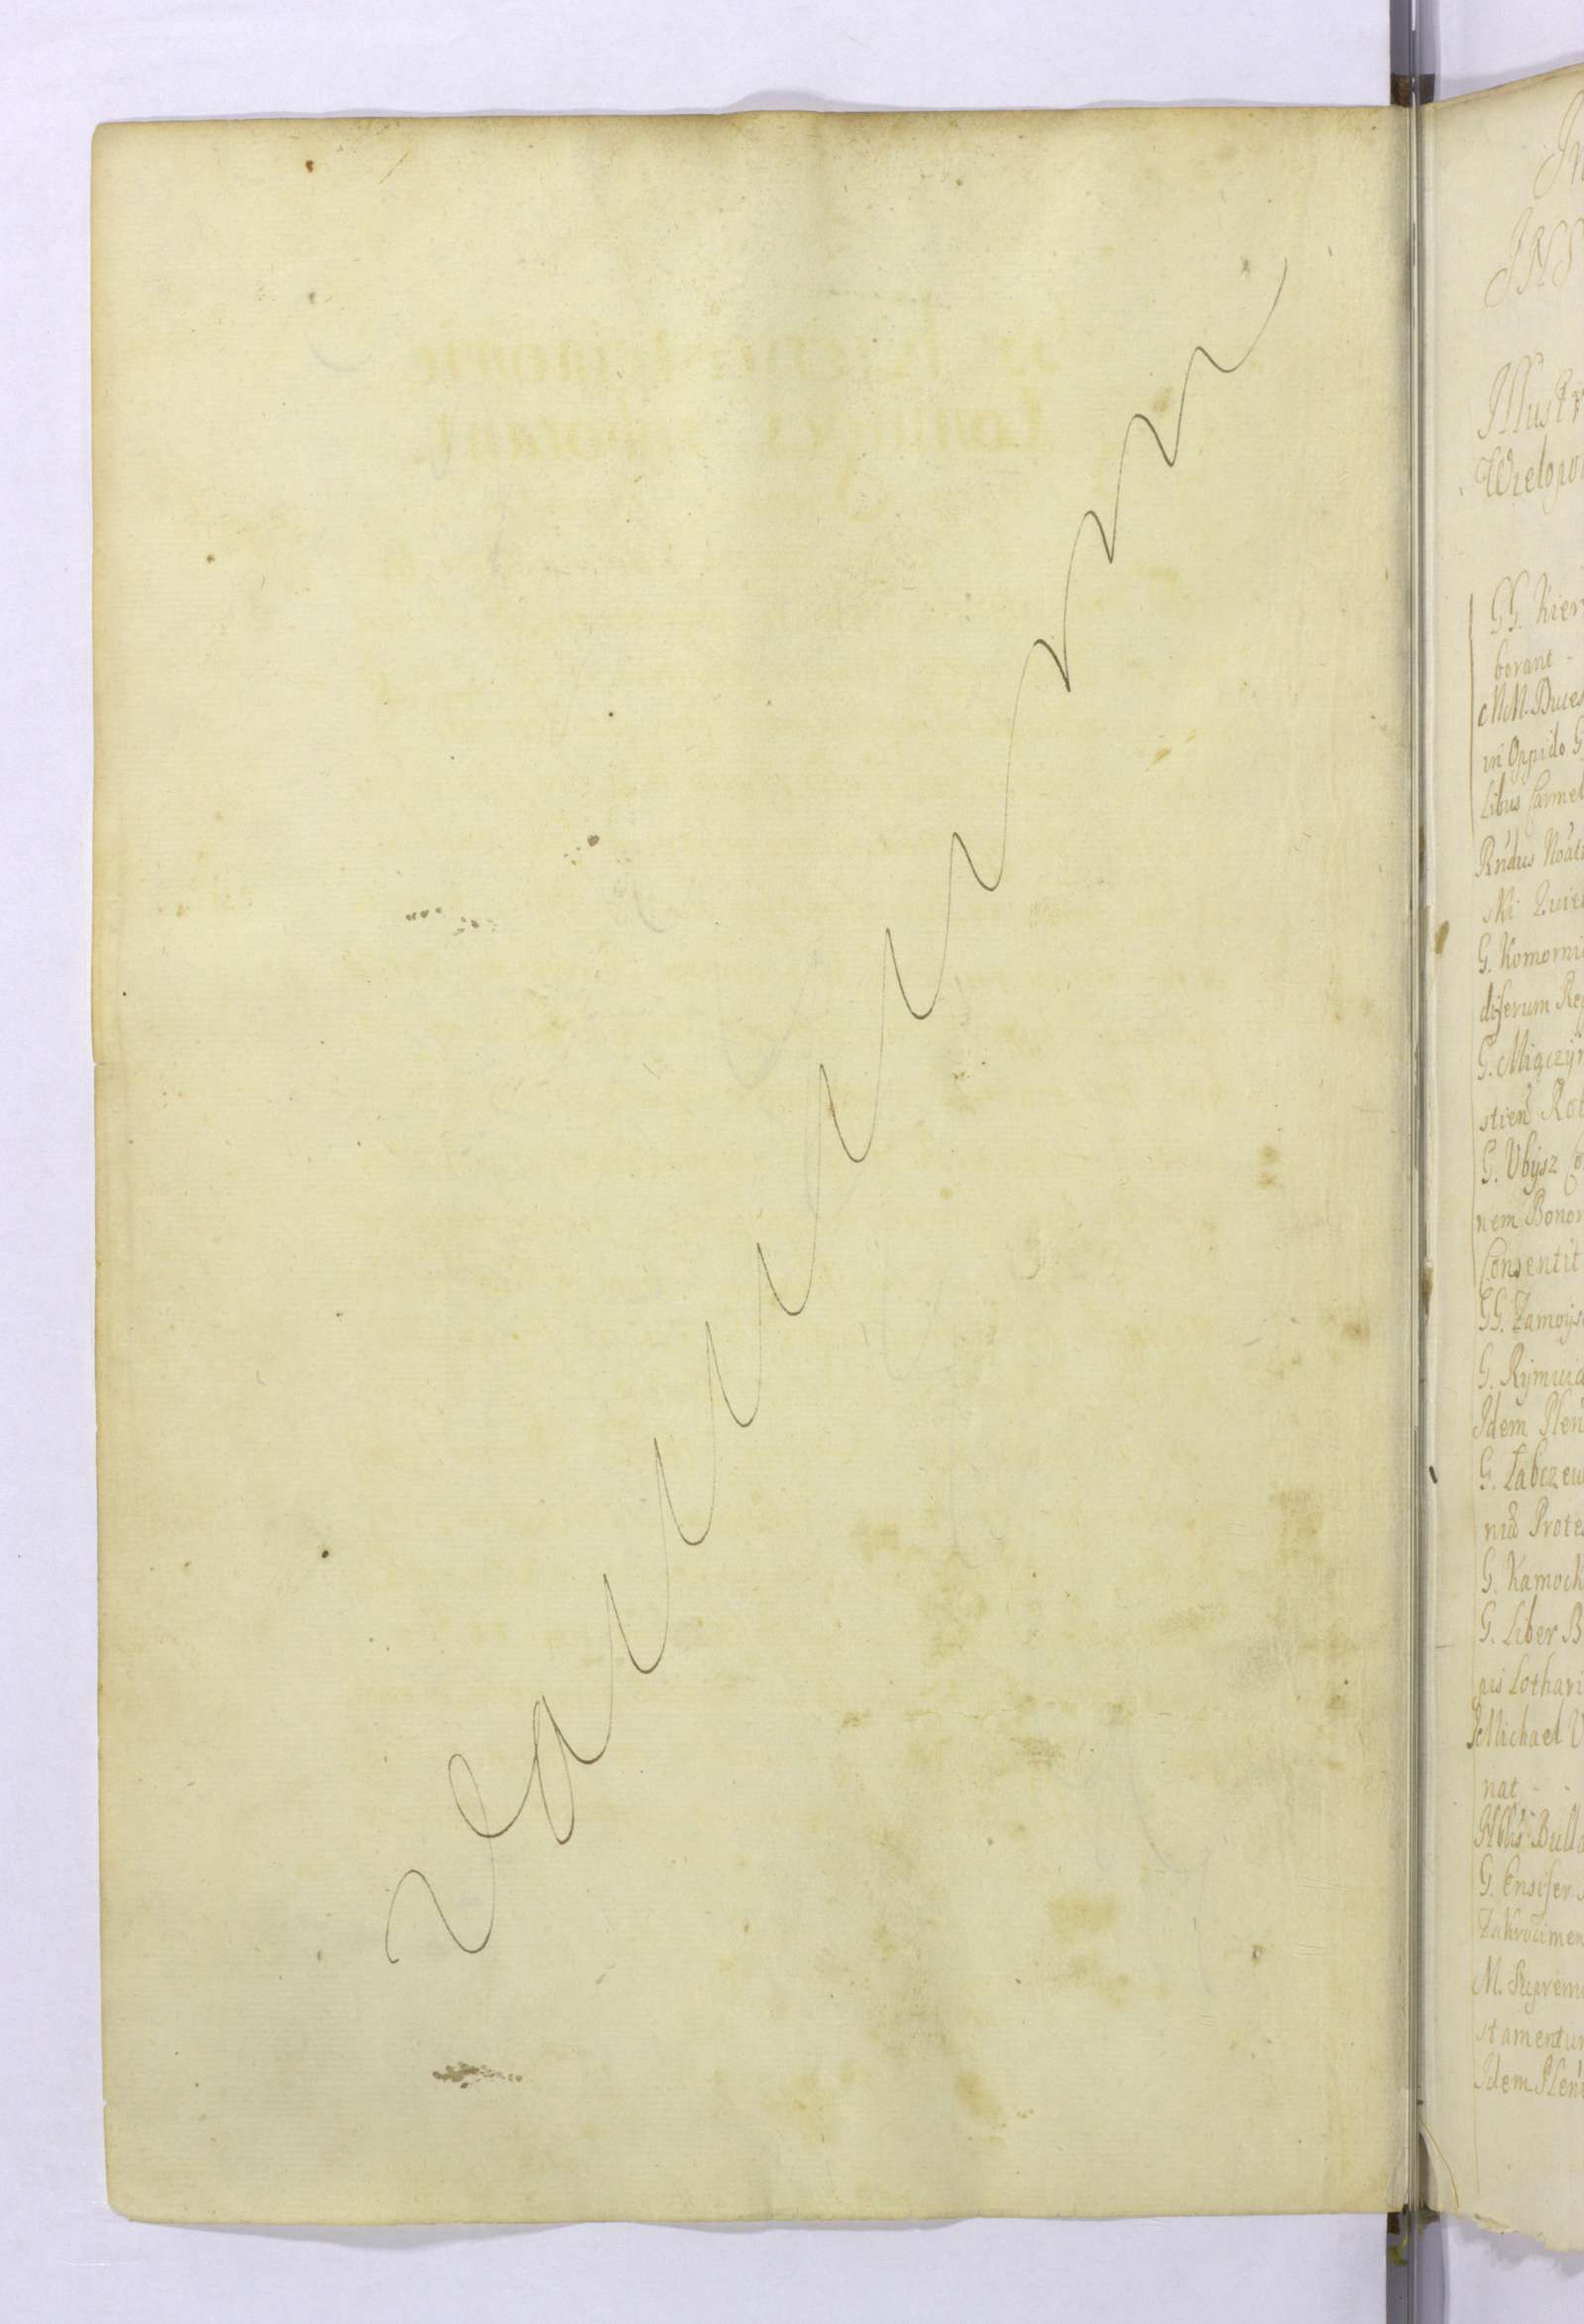 Vacuum
In
INS
Illustr
Wielopol
GG. Kier
borant -
MM. Duces
in Oppido G
libus Carmel
Rndus Noat
ski
G. Komorni
diferum Reg
G. Miączyn
G. Ubysz Co
nem Bonor
Consentit
GG. Zamoys
G. Rymwid
Idem Plen
G. Łabczew
nia Protes
G. Kamock
G. Liber B
pis Lothari
Michael V
nat - -
Nblis Bull
G. Ensifer
Zakrocimen
M. Suprem
stamentum
Idem Plen